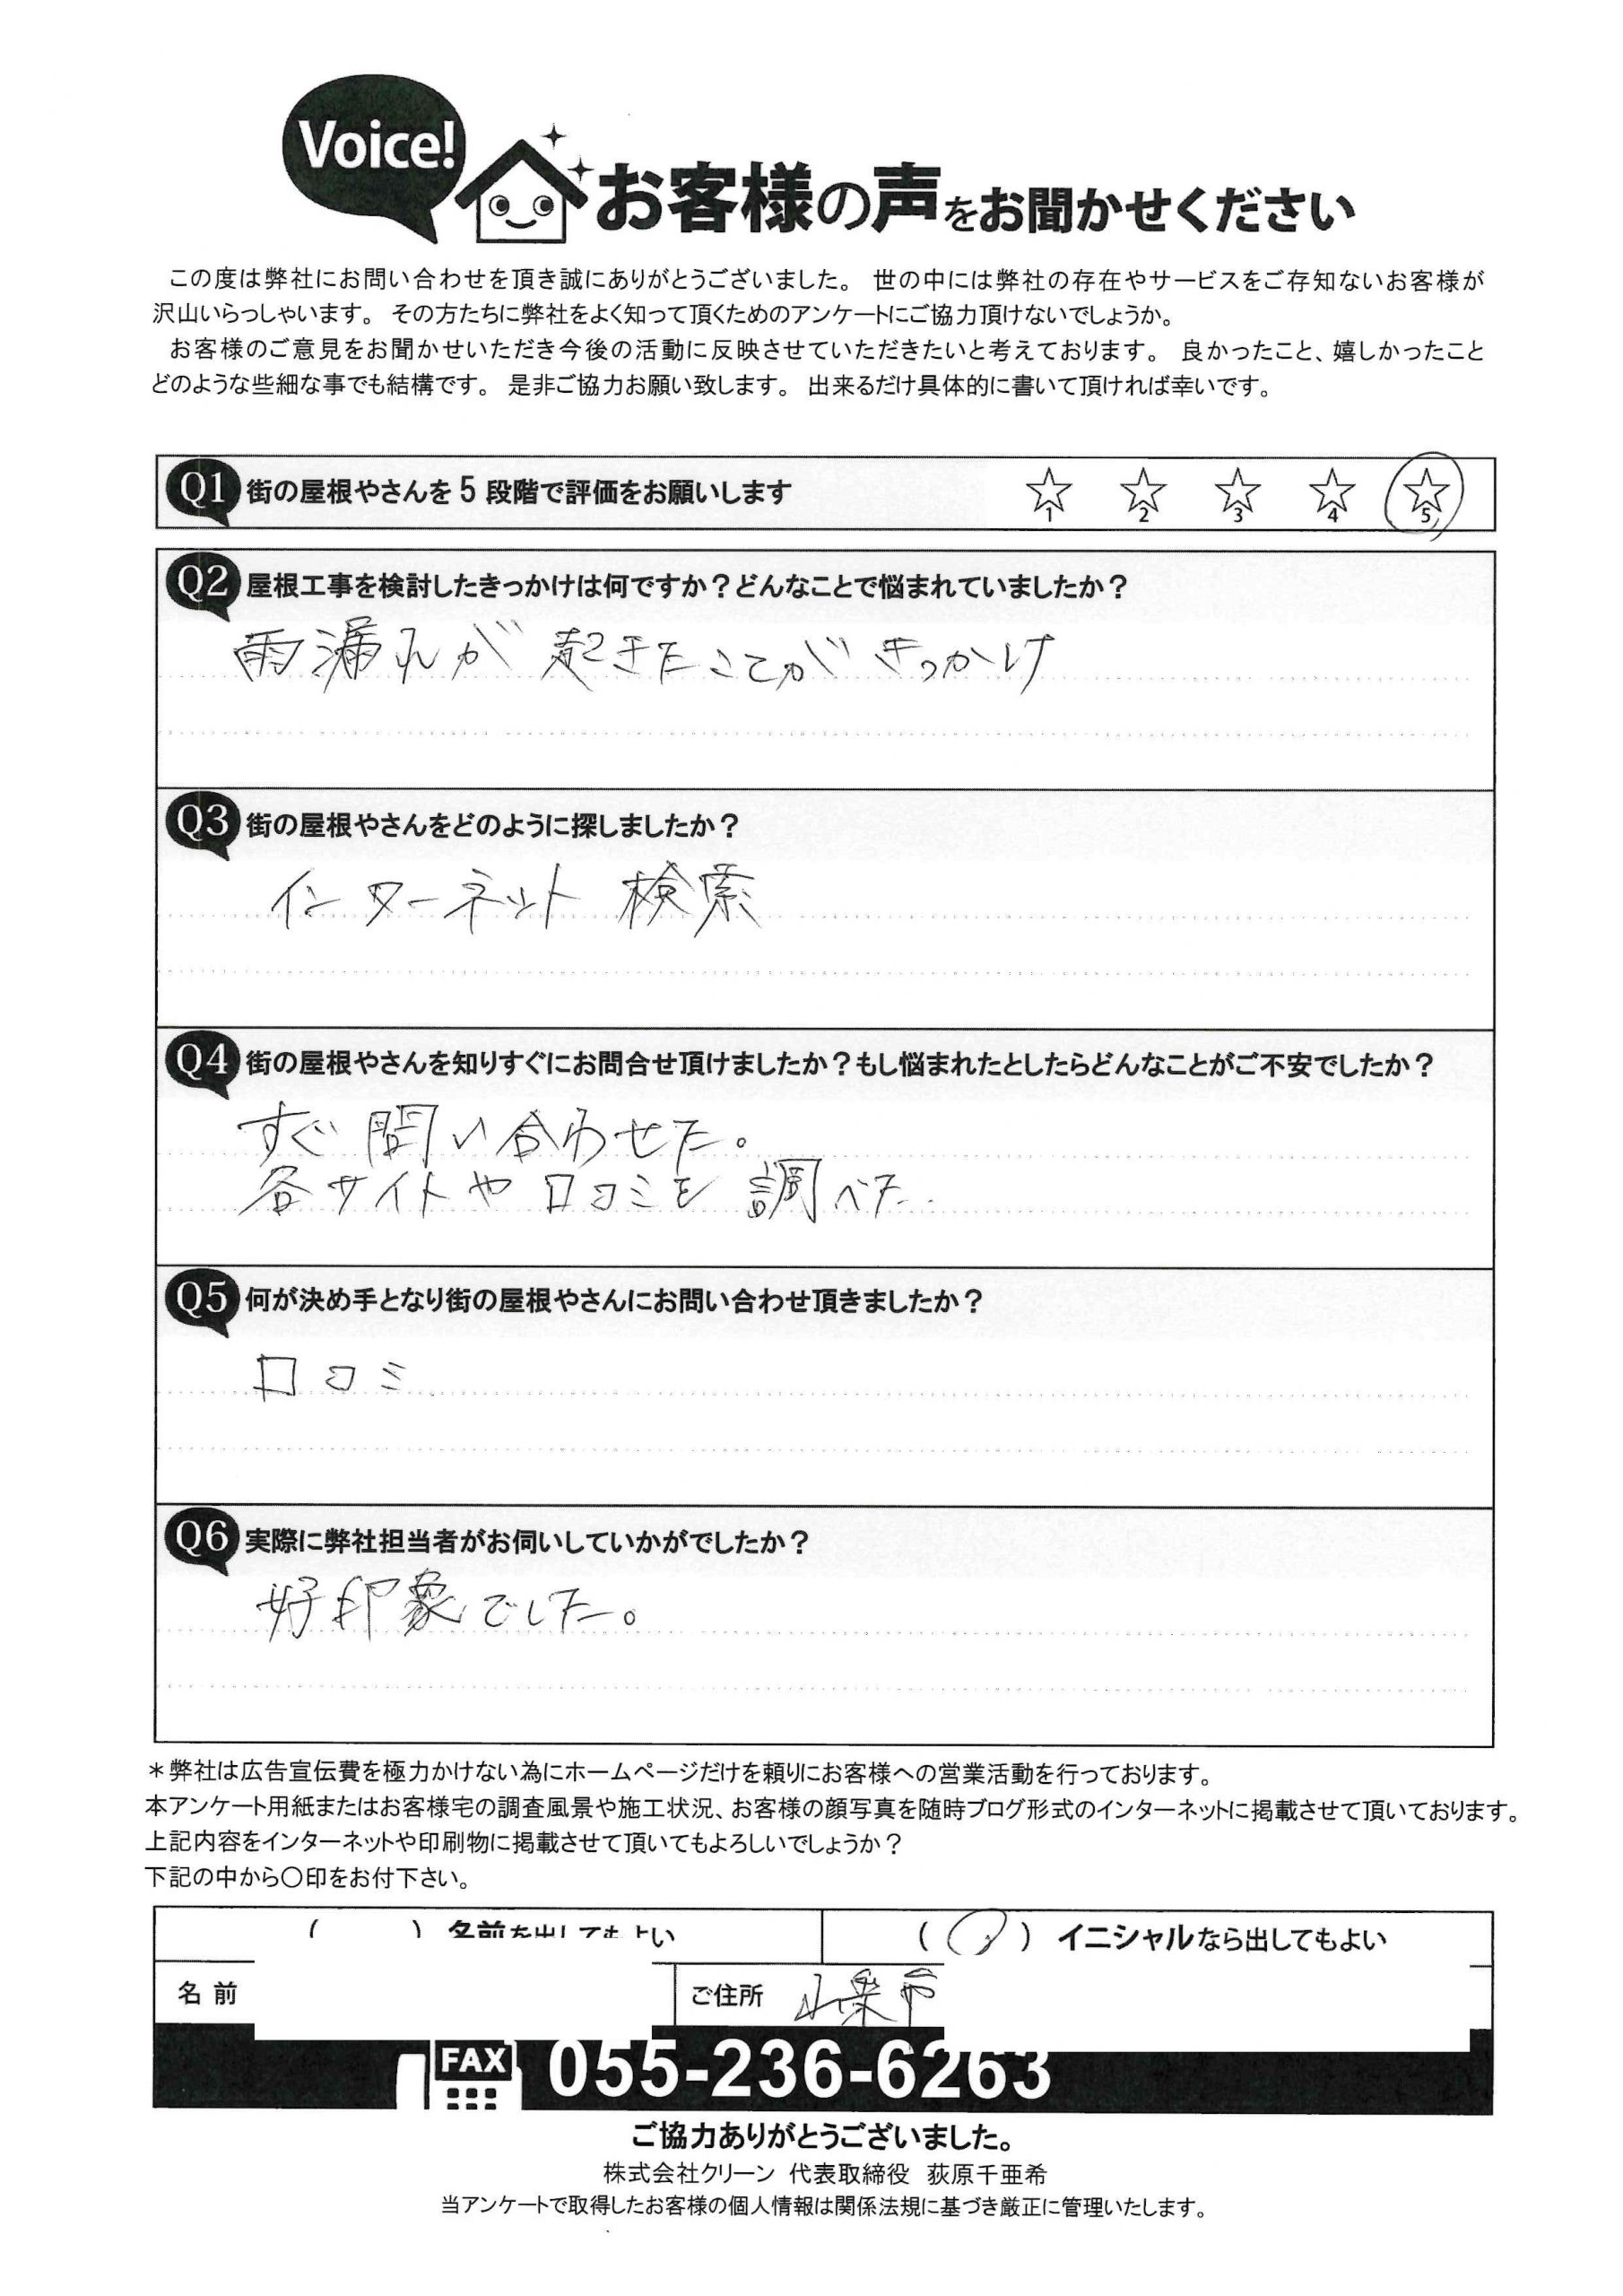 Voice!
お客様の声をお聞かせください
この度は弊社にお問い合わせを頂き誠にありがとうございました。 世の中には弊社の存在やサービスをご存知ないお客様が
沢山いらっしゃいます。 その方たちに弊社をよく知って頂くためのアンケートにご協力頂けないでしょうか。
お客様のご意見をお聞かせいただき今後の活動に反映させていただきたいと考えております。 良かったこと、嬉しかったこと
どのような些細な事でも結構です。 是非ご協力お願い致します。 出来るだけ具体的に書いて頂ければ幸いです。
Q1 街の屋根やさんを5段階で評価をお願いします ☆1 ☆2 ☆3 ☆4 ☆5
Q2 屋根工事を検討したきっかけは何ですか？どんなことで悩まれていましたか？
雨漏れが起きたことがきっかけ
Q3 街の屋根やさんをどのように探しましたか？
インターネット検索
Q4 街の屋根やさんを知りすぐにお問合せ頂けましたか？もし悩まれたとしたらどんなことがご不安でしたか？
すぐ問い合わせた。
各サイトや口コミを調べた。
Q5 何が決め手となり街の屋根やさんにお問い合わせ頂きましたか？
口コミ
Q6 実際に弊社担当者がお伺いしていかがでしたか？
好印象でした。
＊弊社は広告宣伝費を極力かけない為にホームページだけを頼りにお客様への営業活動を行っております。
本アンケート用紙またはお客様宅の調査風景や施工状況、お客様の顔写真を随時ブログ形式のインターネットに掲載させて頂いております。
上記内容をインターネットや印刷物に掲載させて頂いてもよろしいでしょうか？
下記の中から〇印をお付下さい。
（　　）名前を出してもよい （〇）イニシャルなら出してもよい
名前 ご住所
FAX 055-236-6263
ご協力ありがとうございました。
株式会社クリーン 代表取締役 荻原千亜希
当アンケートで取得したお客様の個人情報は関係法規に基づき厳正に管理いたします。